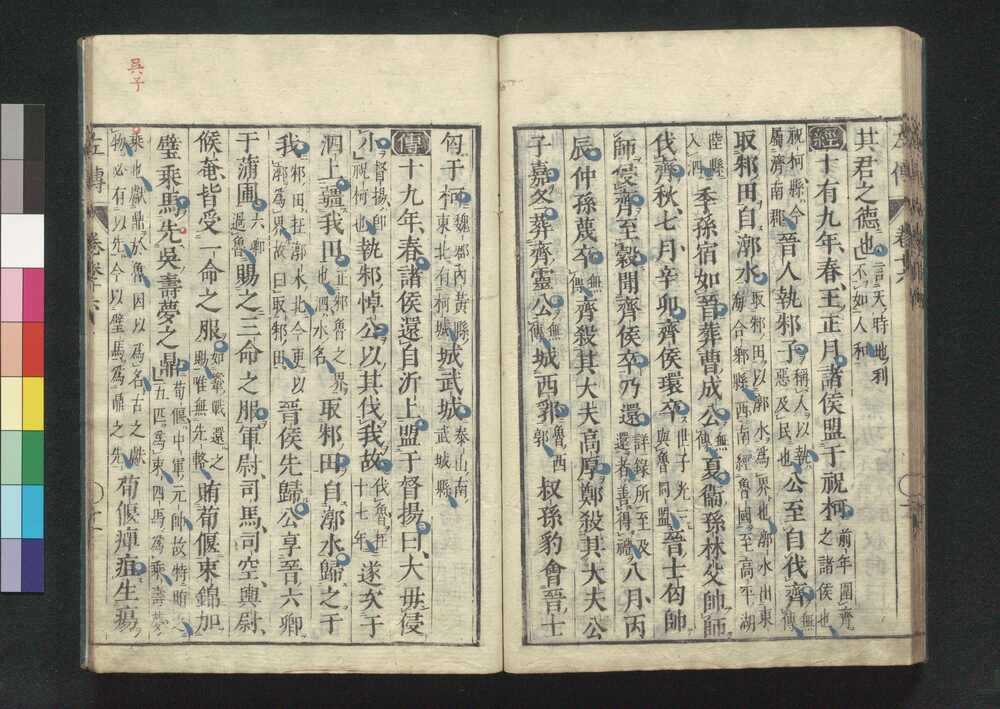 其君之德也言天時地利不如人和
經十有九年春王正月諸侯盟于祝柯前年圍齊之諸侯也
祝柯縣今屬濟南郡晉人執邾子稱人以執惡及民也公至自伐齊無傳
取邾田自漷水取邾田以漷水為界也漷水出東海合鄉縣西南經魯國至高平湖
陸縣入泗季孫宿如晉葬曹成公無傳夏衞孫林父帥師
伐齊秋七月辛卯齊侯環卒世子光三與魯同盟晉士匄帥
師侵齊至穀聞齊侯卒乃還詳錄所至及還者善得禮八月丙
辰仲孫蔑卒無傳齊殺其大夫高厚鄭殺其大夫公
子嘉冬葬齊靈公無傳城西郛魯西郛叔孫豹會晉士
匄于柯魏郡內黃縣東北有柯城城武城泰山南武城縣
傳十九年春諸侯還自沂上盟于督揚曰大毋侵
小督揚即祝柯也執邾悼公以其伐我故伐魯在十七年遂次于
泗上疆我田正邾魯之界也泗水名取邾田自漷水歸之于
我邾田在漷水北今更以漷為界故曰取邾田晉侯先歸公享晉六卿
于蒲圃六卿過魯賜之三命之服軍尉司馬司空輿尉
候奄皆受一命之服如鞌戰還之賜唯無先輅賄荀偃束錦加
璧乘馬先吳壽夢之鼎荀偃中軍元帥故特賄之五匹為束四馬為乘壽夢
乘也獻鼎於魯因以為名古之獻物必有以先今以璧馬為鼎之先荀偃癉疽生瘍
左傳
卷廿六
吳子